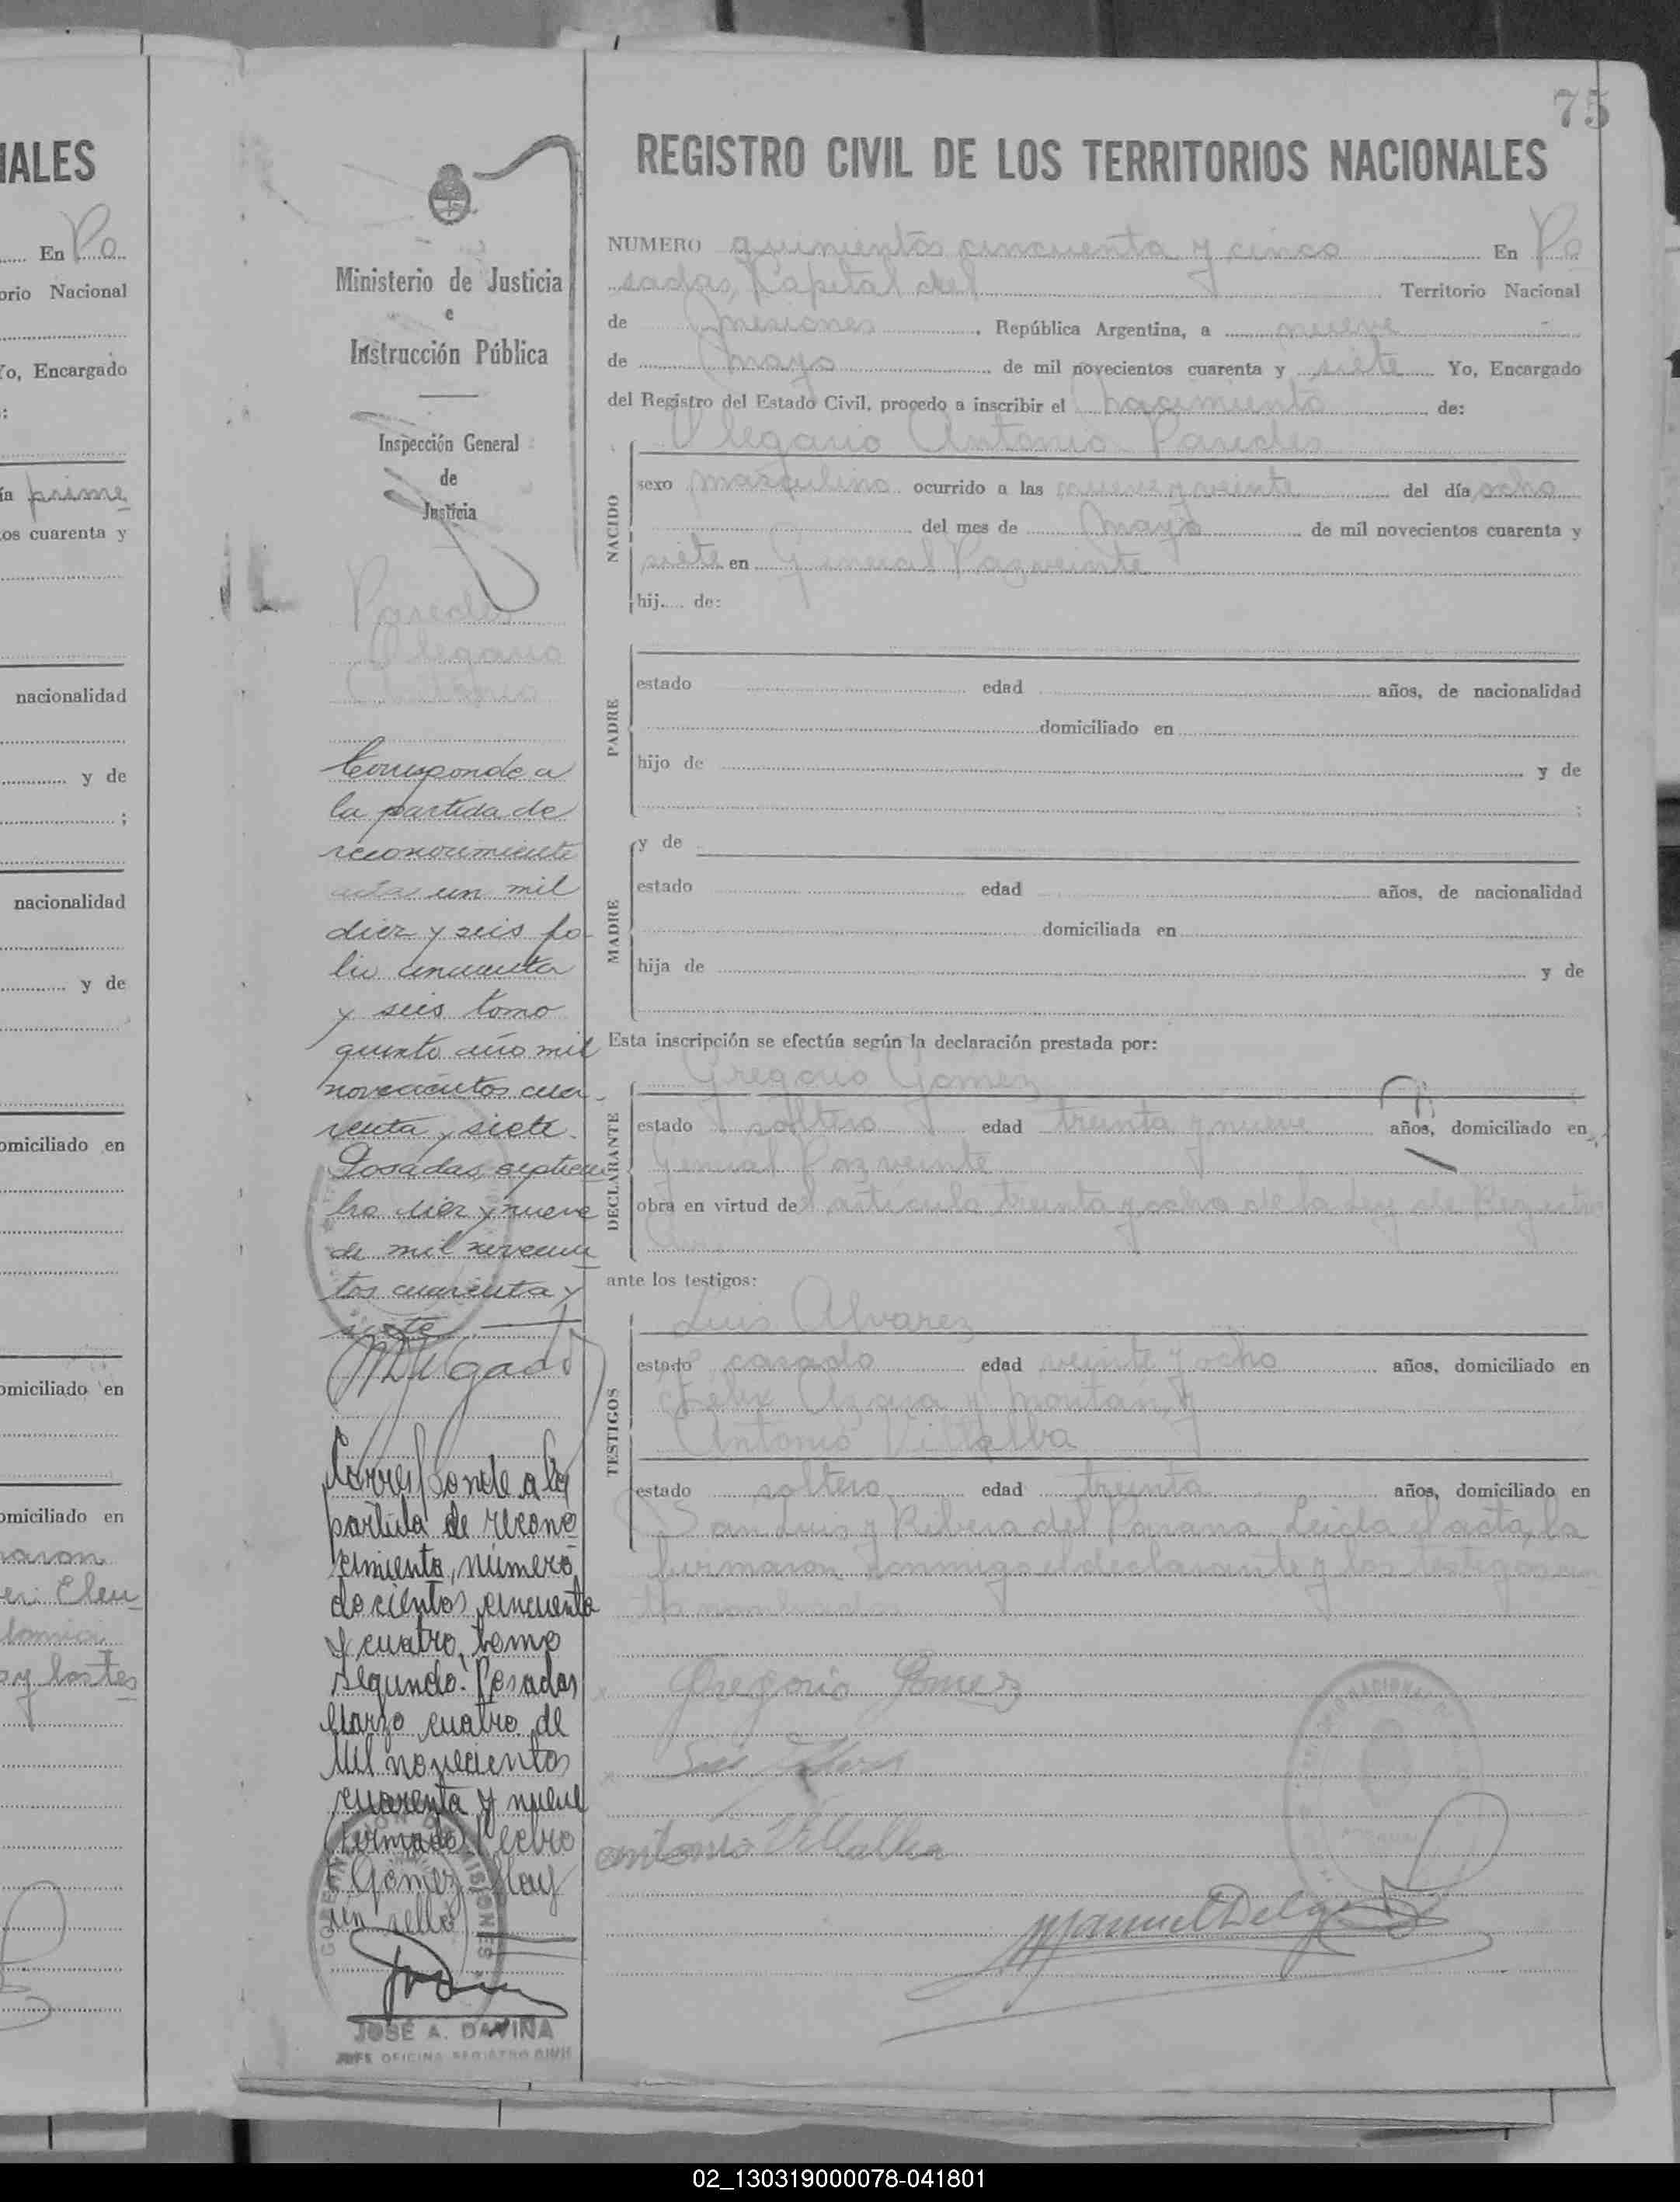 IALES
En Po
orio Nacional
Yo, Encargado
:
ía prime
os cuarenta y
nacionalidad
y de
;
nacionalidad
y de
omiciliado en
omiciliado en
omiciliado en
naron
Eleu
y los tes
75
Ministerio de Justicia
e
Instrucción Pública
Inspección General
de
Justicia
Paredes
Olegario
Antonio
Corresponde a
la partida de
reconocimiento
acta un mil
diez y seis fo-
lio cincuenta
y seis tomo
quinto año mil
novecientos cua-
renta y siete.
Posadas, septiem
bro diez y nueve
de mil novecien
tos cuarenta y
siete
MDelgado
Corresponde a la
partida de recono
cimiento, número
docientos cincuenta
y cuatro, tomo
segundo. Posadas
Marzo cuatro de
Mil novecientos
cuarenta y nueve
(Firmado) Pedro
Gómez Hay
un sello
GOBERNACION DE MISIONES
JOSÉ A. DAVIÑA
JEFE OFICINA REGISTRO CIVIL
REGISTRO CIVIL DE LOS TERRITORIOS NACIONALES
NUMERO quinientos cincuenta y cinco En Po
sadas, Capital del Territorio Nacional
de Misiones, República Argentina, a nueve
de Mayo de mil novecientos cuarenta y siete Yo, Encargado
del Registro del Estado Civil, procedo a inscribir el nacimiento de:
Olegario Antonio Paredes
NACIDO
sexo masculino ocurrido a las nueve y veinte del día ocho
del mes de Mayo de mil novecientos cuarenta y
siete en General Paz veinte
hij.... de:
PADRE
estado edad años, de nacionalidad
domiciliado en
hijo de y de
;
MADRE
y de
estado edad años, de nacionalidad
domiciliada en
hija de y de
Esta inscripción se efectúa según la declaración prestada por:
DECLARANTE
Gregorio Gomez
estado soltero edad treinta y nueve años, domiciliado en
General Paz veinte
obra en virtud del artículo treinta y ocho de la Ley de Registro
ante los testigos:
TESTIGOS
Luis Alvarez
estado casado edad veinte y ocho años, domiciliado en
Felix Azara y
Antonio Villalba
estado soltero edad treinta años, domiciliado en
San Luis y Ribera del Parana Leida el acta, la
firmaron conmigo el declarante y los testigos an
tes nombrados
Gregorio Gomez
Antonio Villalba
Manuel Delgado
02_130319000078-041801